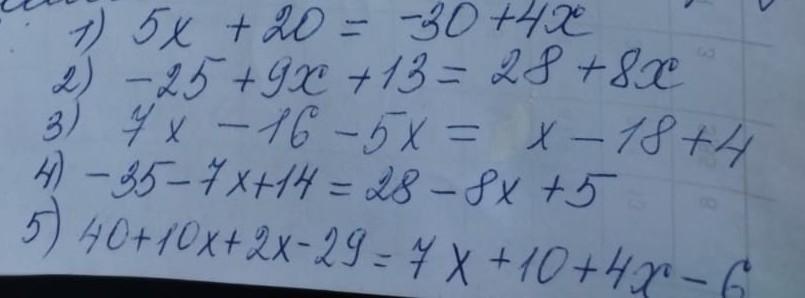 1) 5x + 20 = -30 + 4x
2) -25 + 9x + 13 = 28 + 8x
3) 7x - 16 - 5x = x - 18 + 4
4) -35 - 7x + 14 = 28 - 8x + 5
5) 40 + 10x + 2x - 29 = 7x + 10 + 4x - 6